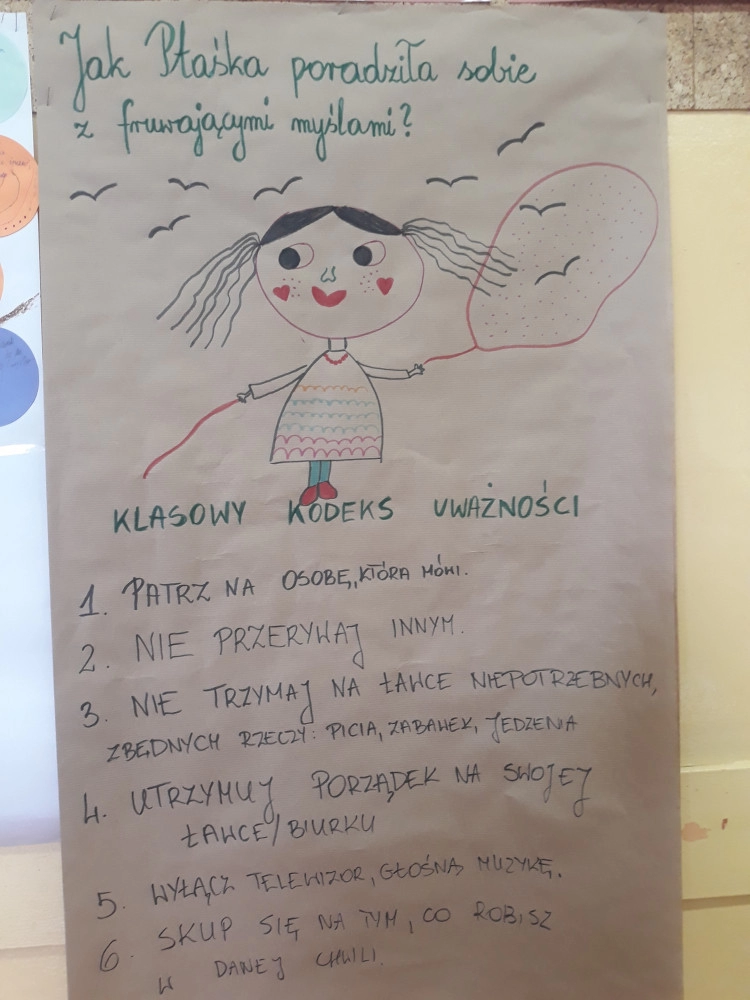 Jak Ptaśka poradziła sobie
z fruwającymi myślami?
KLASOWY KODEKS UWAŻNOŚCI
1. PATRZ NA OSOBĘ, KTÓRA MÓWI.
2. NIE PRZERYWAJ INNYM.
3. NIE TRZYMAJ NA ŁAWCE NIEPOTRZEBNYCH,
ZBĘDNYCH RZECZY: PICIA, ZABAWEK, JEDZENIA
4. UTRZYMUJ PORZĄDEK NA SWOJEJ
ŁAWCE/BIURKU
5. WYŁĄCZ TELEWIZOR, GŁOŚNĄ MUZYKĘ.
6. SKUP SIĘ NA TYM, CO ROBISZ
W DANEJ CHWILI.